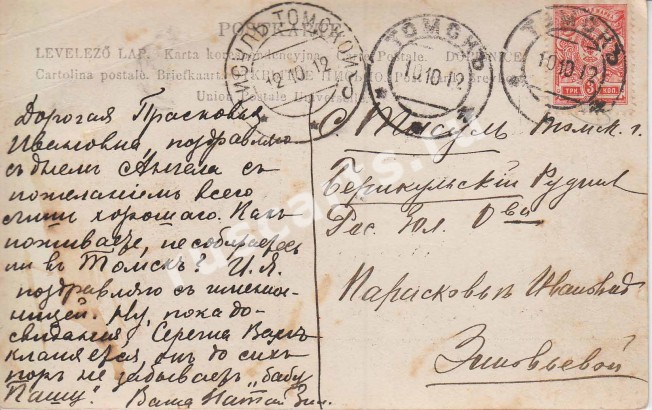 POSTKARTE
LEVELEZŐ LAP. Karta korespondencyjna. Carte Postale. DOPISNICE.
Cartolina postale. Briefkaart. ОТКРЫТОЕ ПИСЬМО. Post card. Brevkort.
Union Postale Universelle.
ТИСУЛЬ ТОМСКОЙ
12.10.12
ТОМСКЪ
10 10 12
ТОМСКЪ
10 10 12
ТРИ 3 КОП.
Дорогая Прасковья
Ивановна, поздравляю
съ днемъ Ангела съ
пожеланіемъ всего
хорошаго. Какъ
поживаете, не собираетесь
ли въ Томскъ? И. Я.
поздравляю съ именин-
ницей. Ну, пока до-
свиданія! Сережа Вамъ
кланяется, онъ до сихъ
поръ не забываетъ „бабу
Пашу". Ваша Зин.
с. Тисуль Томск. г.
Берикульскій Рудник
Рос. Зол. О-ва
Парасковьѣ Ивановнѣ
Зиновьевой